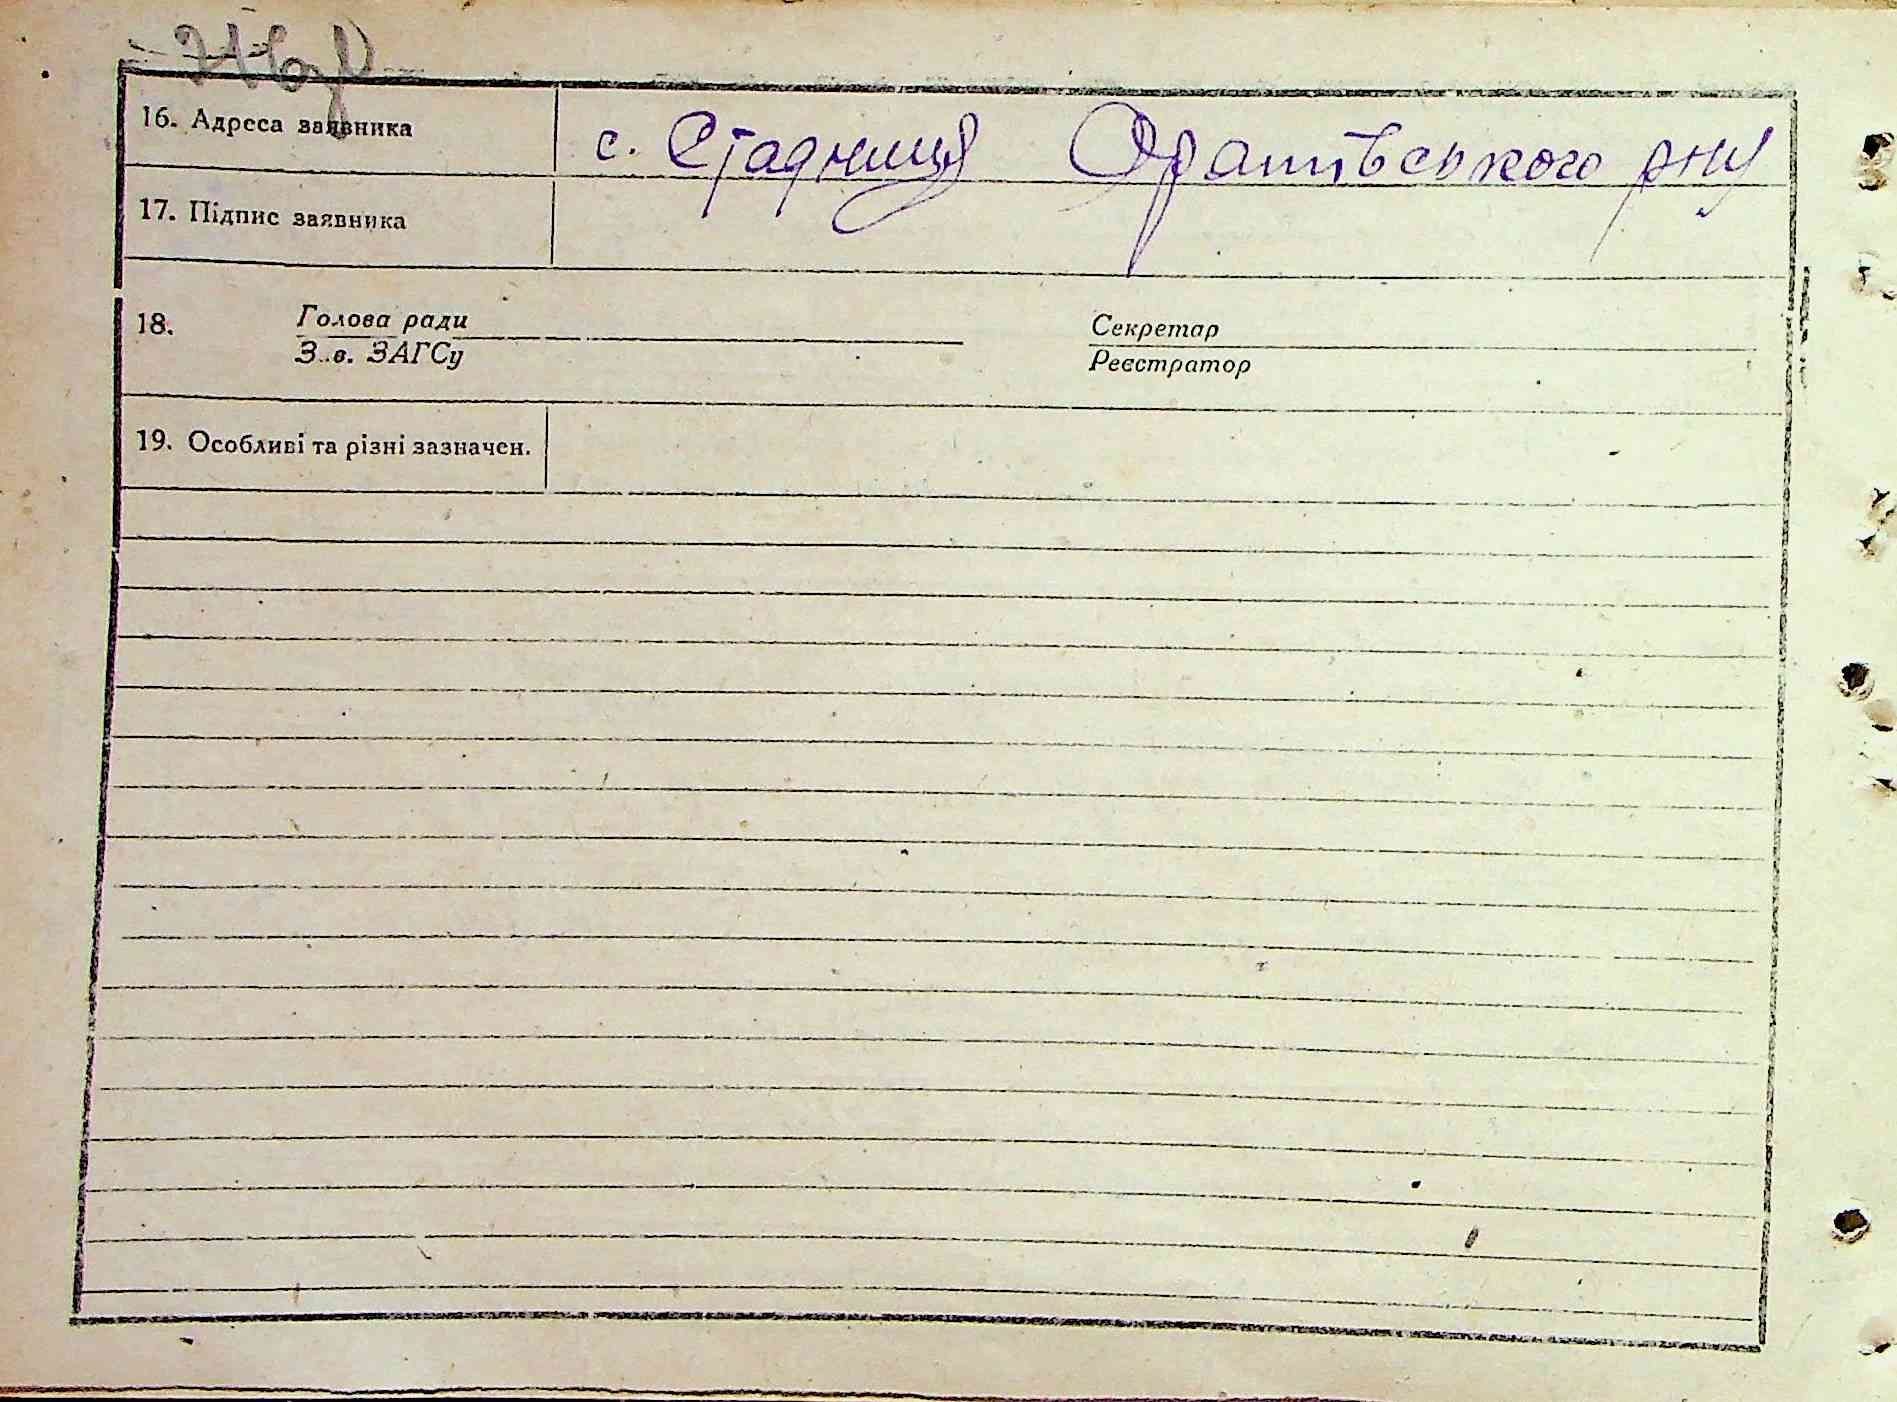 16. Адреса заявника с. Стадниця Оратівського р-ну
17. Підпис заявника
18. Голова ради Секретар
З..в. ЗАГСу Реєстратор
19. Особливі та різні зазначен.